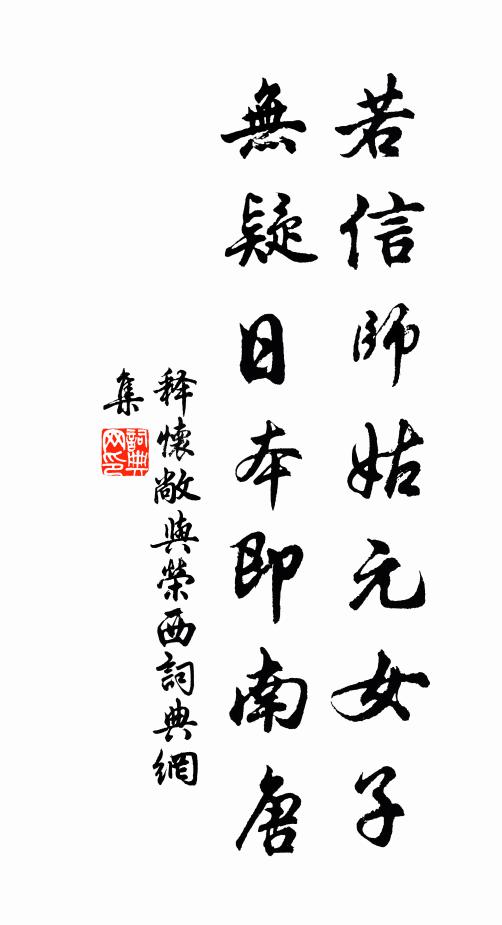 若信師姑元女子
無疑日本即南唐
释懷敞與榮西詞典網
集
詞典
网印